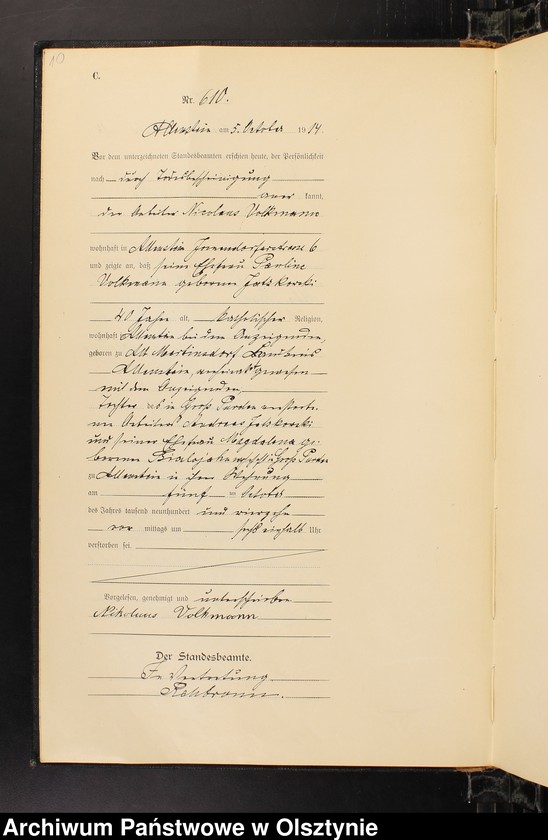 10
C.
Nr. 610.
Allenstein am 5. October 1914.
Vor dem unterzeichneten Standesbeamten erschien heute, der Persönlichkeit
nach durch Todesbescheinigung
aner kannt,
der Arbeiter Nicolaus Volkmann
wohnhaft in Allenstein Jommendorferstrasse 6
und zeigte an, daß seine Ehefrau Pauline
Volkmann geborenen
40 Jahre alt, katholischer Religion,
wohnhaft Allenstein bei dem Anzeigenden,
geboren zu Alt Martinsdorf, Landkreis
Allenstein, verheirathet gewesen
mit dem Anzeigenden,
Tochter des in Groß Purden verstorbe-
nen Arbeiters Andreas
und seiner Ehefrau Magdalena ge-
borenen Groß Purden
zu Allenstein in ihrer Wohnung
am fünf ten October
des Jahres tausend neunhundert und vierzehn
vor mittags um sechs einhalb Uhr
verstorben sei.
Vorgelesen, genehmigt und unterschrieben
Nikolaus Volkmann
Der Standesbeamte.
In Vertretung.
Archiwum Państwowe w Olsztynie